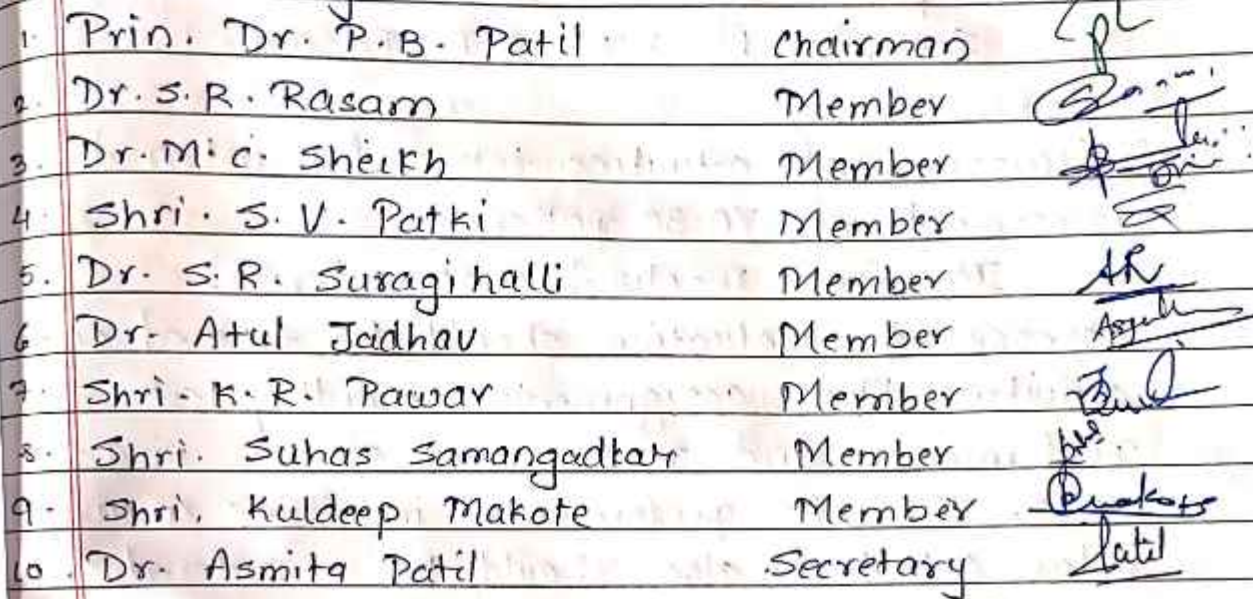 1. Prin. Dr. P.B. Patil Chairman
2. Dr. S.R. Rasam Member
3. Dr. M.C. Sheikh Member
4. Shri. S.V. Patki Member
5. Dr. S.R. Suragihalli Member
6. Dr. Atul Jadhav Member
7. Shri. K.R. Pawar Member
8. Shri. Suhas Samangadkar Member
9. Shri. Kuldeep Makote Member
10. Dr. Asmita Patil Secretary Patil